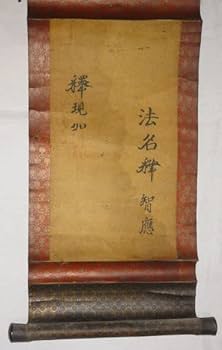 法名釋 智應
釋現如